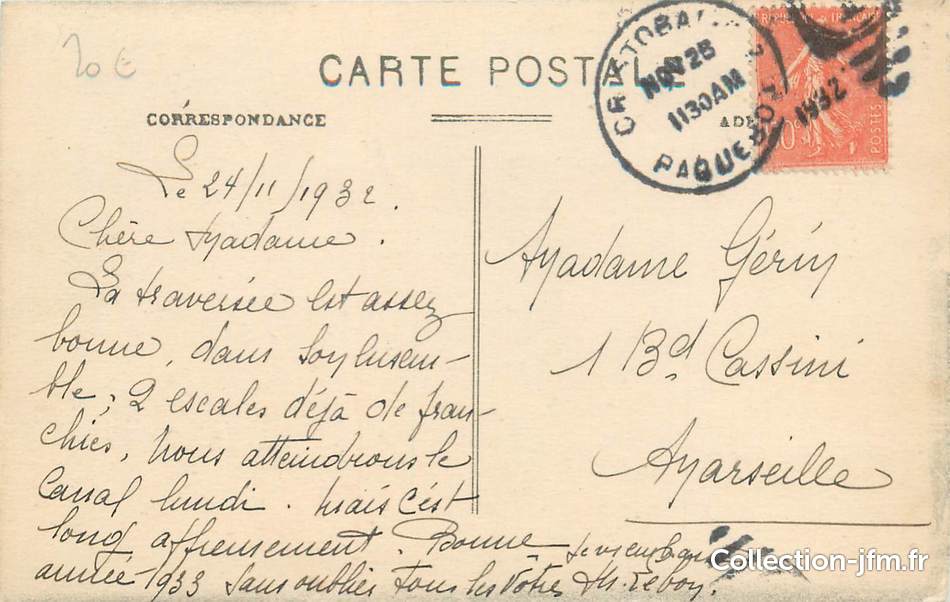 20 €
CARTE POSTALE
CORRESPONDANCE
CRISTOBAL
NOV 25
11 30 AM
1932
PAQUEBOT
REPUBLIQUE FRANÇAISE
POSTES
Le 24/11/1932.
Chère Madame.
La traversée est assez
bonne, dans son ensem-
ble, 2 escales déjà de fran-
chies, Nous atteindrons le
Canal lundi. Mais c'est
long affreusement. Bonne
année 1933 sans oublier tous les Vôtres
Madame Gérin
1 Bd Cassini
Marseille
Collection-jfm.fr